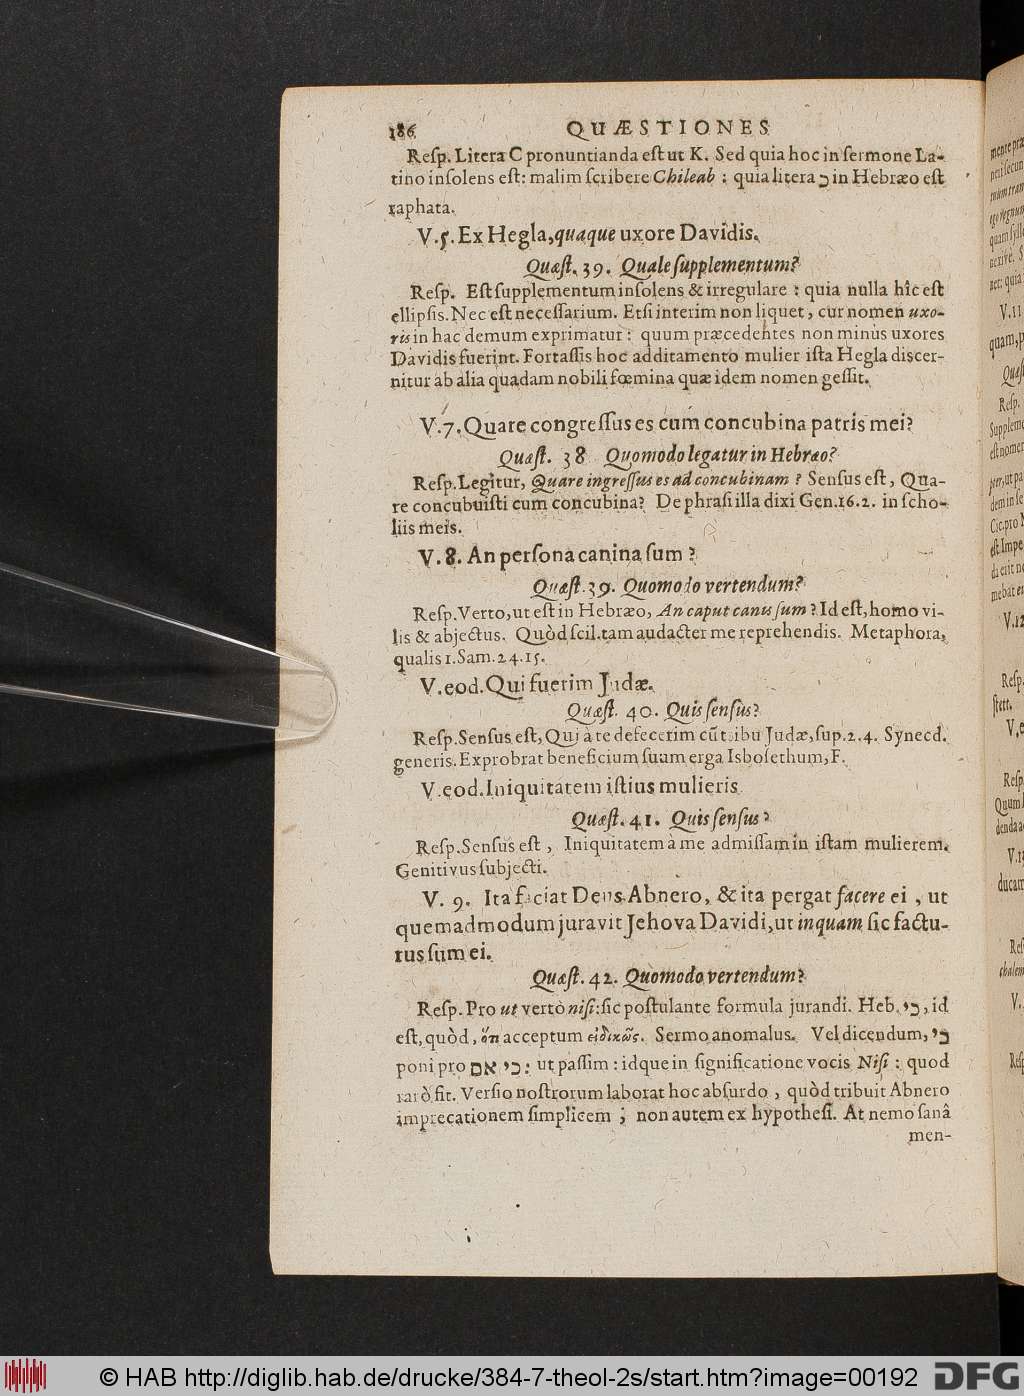 186 QUÆSTIONES
Reſp. Litera C pronuntianda eſt ut K. Sed quia hoc in ſermone La-
tino inſolens eſt: malim ſcribere Chileab : quia litera כ in Hebræo eſt
raphata.
V. 5. Ex Hegla, quaque uxore Davidis.
Quæſt. 39. Quale ſupplementum?
Reſp. Eſt ſupplementum inſolens & irregulare : quia nulla hîc eſt
ellipſis. Nec eſt neceſſarium. Etſi interim non liquet, cur nomen uxo-
ris in hac demum exprimatur : quum præcedentes non minùs uxores
Davidis fuerint. Fortaſſis hoc additamento mulier iſta Hegla diſcer-
nitur ab alia quadam nobili fœmina quæ idem nomen geſſit.
V. 7. Quare congreſſus es cum concubina patris mei?
Quæſt. 38 Quomodo legatur in Hebræo?
Reſp. Legitur, Quare ingreſſus es ad concubinam ? Senſus eſt, Qua-
re concubuiſti cum concubina? De phraſi illa dixi Gen. 16. 2. in ſcho-
liis meis.
V. 8. An perſona canina ſum ?
Quæſt. 39. Quomodo vertendum?
Reſp. Verto, ut eſt in Hebræo, An caput canis ſum ? Id eſt, homo vi-
lis & abjectus. Quòd ſcil. tam audacter me reprehendis. Metaphora,
qualis 1. Sam. 24. 15.
V. eod. Qui fuerim Judæ.
Quæſt. 40. Quis ſenſus?
Reſp. Senſus eſt, Qui à te defecerim cũ tribu Judæ, ſup. 2. 4. Synecd.
generis. Exprobrat beneficium ſuum erga Isboſethum, F.
V. eod. Iniquitatem iſtius mulieris
Quæſt. 41. Quis ſenſus ?
Reſp. Senſus eſt , Iniquitatem à me admiſſam in iſtam mulierem.
Genitivus ſubjecti.
V. 9. Ita faciat Deus Abnero, & ita pergat facere ei , ut
quemadmodum juravit Jehova Davidi, ut inquam ſic factu-
rus ſum ei.
Quæſt. 42. Quomodo vertendum?
Reſp. Pro ut verto niſi: ſic poſtulante formula jurandi. Heb. כי, id
eſt, quòd, ὅτι acceptum εἰδικῶς. Sermo anomalus. Vel dicendum, כי
poni pro כי אם : ut paſſim : idque in ſignificatione vocis Niſi : quod
rarò fit. Verſio noſtrorum laborat hoc abſurdo , quòd tribuit Abnero
imprecationem ſimplicem ; non autem ex hypotheſi. At nemo ſanâ
men-
© HAB http://diglib.hab.de/drucke/384-7-theol-2s/start.htm?image=00192 DFG